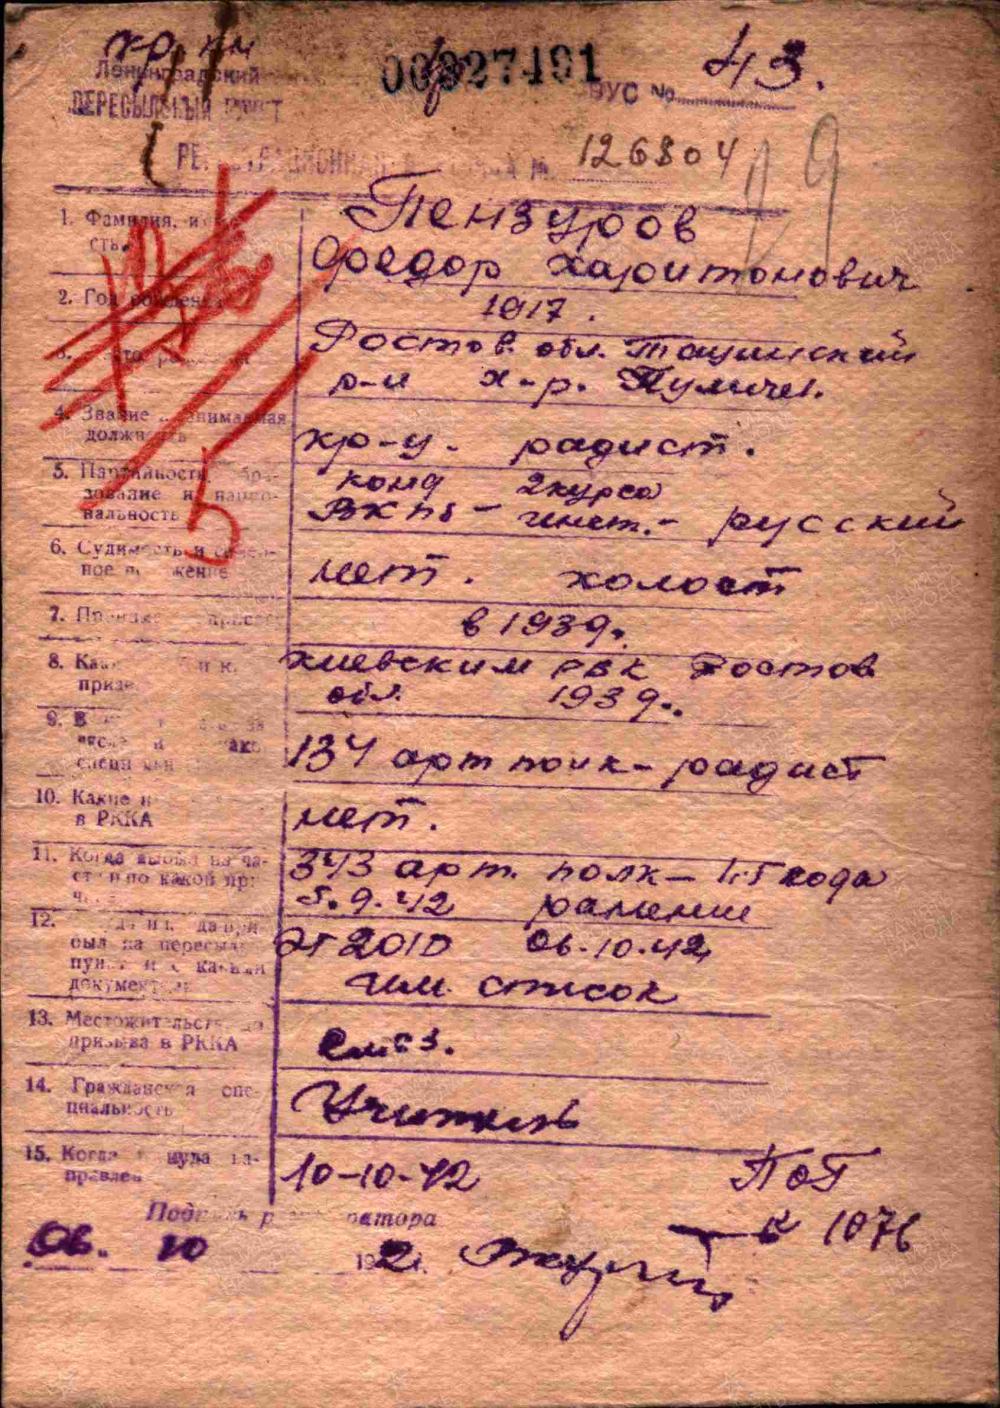 Ленинградский
00927491
43.
ПЕРЕСЫЛЬНЫЙ ПУНКТ
ВУС №
РЕГИСТРАЦИОННАЯ № 126804
19
1. Фамилия, и
сть.
Пензуров
Федор Харитонович
2. Год рождения
1917.
Ростов. обл. Тацинский
р-н х-р.
4. Звание и занимаемая
должность
кр-ц. радист.
5. Партийность, обра-
зование и нацио-
нальность
канд 2 курса
ВКПб - инст. - русский
6. Судимость и семей-
ное положение
нет. холост
7.
в 1939.
8. Каким
призван
киевским РВК Ростов
обл. 1939г.
9. В
134 арт полк - радист
10. Какие
в РККА
нет.
11. Когда выбыл из ча-
сти и по какой при-
343 арт. полк -
5.9.42 ранение
12.
был на пересыльн
пункт и с какими
документами
ЭГ 2010 06.10.42
им. список
13. Местожительство до
призыва в РККА
14. Гражданская спе-
циальность
Учитель
15. Когда и куда на-
правлен
10-10-42
Подпись регистратора
к 1076
06. 10 1942 г.
5